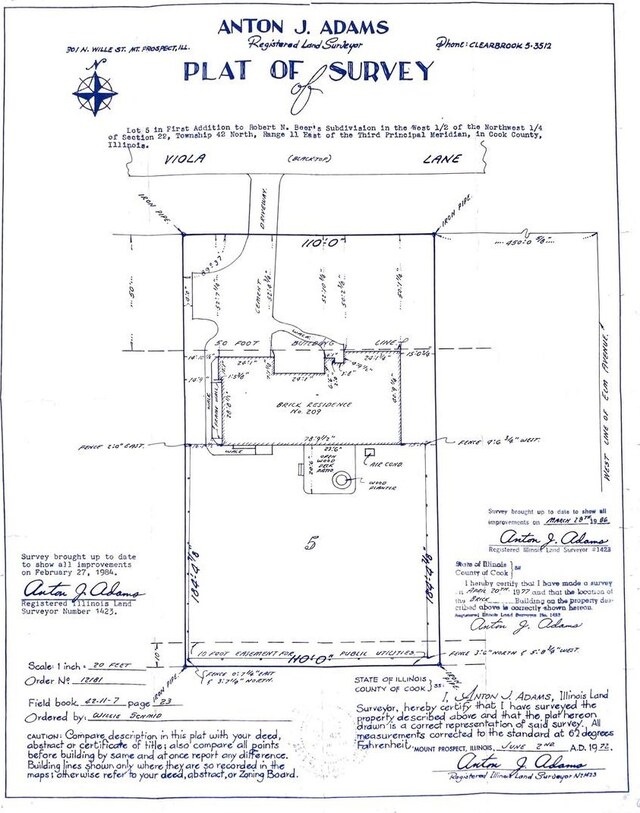 ANTON J. ADAMS
301 N. WILLE ST. MT. PROSPECT, ILL.
Registered Land Surveyor
Phone: CLEARBROOK 5-3512
N
PLAT OF SURVEY
Lot 5 in First Addition to Robert N. Beer's Subdivision in the West 1/2 of the Northwest 1/4
of Section 22, Township 42 North, Range 11 East of the Third Principal Meridian, in Cook County,
Illinois.
VIOLA (BLACKTOP) LANE
IRON PIPE
IRON PIPE
DRIVEWAY
CEMENT
110'-0"
50'
WEST LINE OF ELM AVENUE
WALK
50 FOOT BUILDING LINE
BRICK RESIDENCE
No. 209
WALK
FENCE 2'-0" EAST.
WALK
OPEN
WOOD
DECK
PATIO
AIR COND.
WOOD
PLANTER
5
Survey brought up to date to show all
improvements on MARCH 28TH 1986
Anton J. Adams
Registered Illinois Land Surveyor #1423
Survey brought up to date
to show all improvements
on February 27, 1984.
Anton J. Adams
Registered Illinois Land
Surveyor Number 1423.
State of Illinois
County of Cook } SS
I hereby certify that I have made a survey
on APRIL 20TH, 1977 and that the location of
the BRICK Building on the property des-
cribed above is correctly shown hereon.
Registered Illinois Land Surveyor No. 1423
Anton J. Adams
10 FOOT EASEMENT FOR PUBLIC UTILITIES
110'-0"
IRON PIPE
Scale: 1 inch = 20 FEET
Order No 12181
Field book 42-11-7 page 23
Ordered by: WILLIE SCHMID
CAUTION: Compare description in this plat with your deed,
abstract or certificate of title; also compare all points
before building by same and at once report any difference.
Building lines shown only where they are so recorded in the
maps; otherwise refer to your deed, abstract, or Zoning Board.
STATE OF ILLINOIS
COUNTY OF COOK } SS.
I, ANTON J. ADAMS, Illinois Land
Surveyor, hereby certify that I have surveyed the
property described above and that the plat hereon
drawn is a correct representation of said survey. All
measurements corrected to the standard at 62 degrees
Fahrenheit.
MOUNT PROSPECT, ILLINOIS, JUNE 2ND A.D. 19
Anton J. Adams
Registered Illinois Land Surveyor No 1423